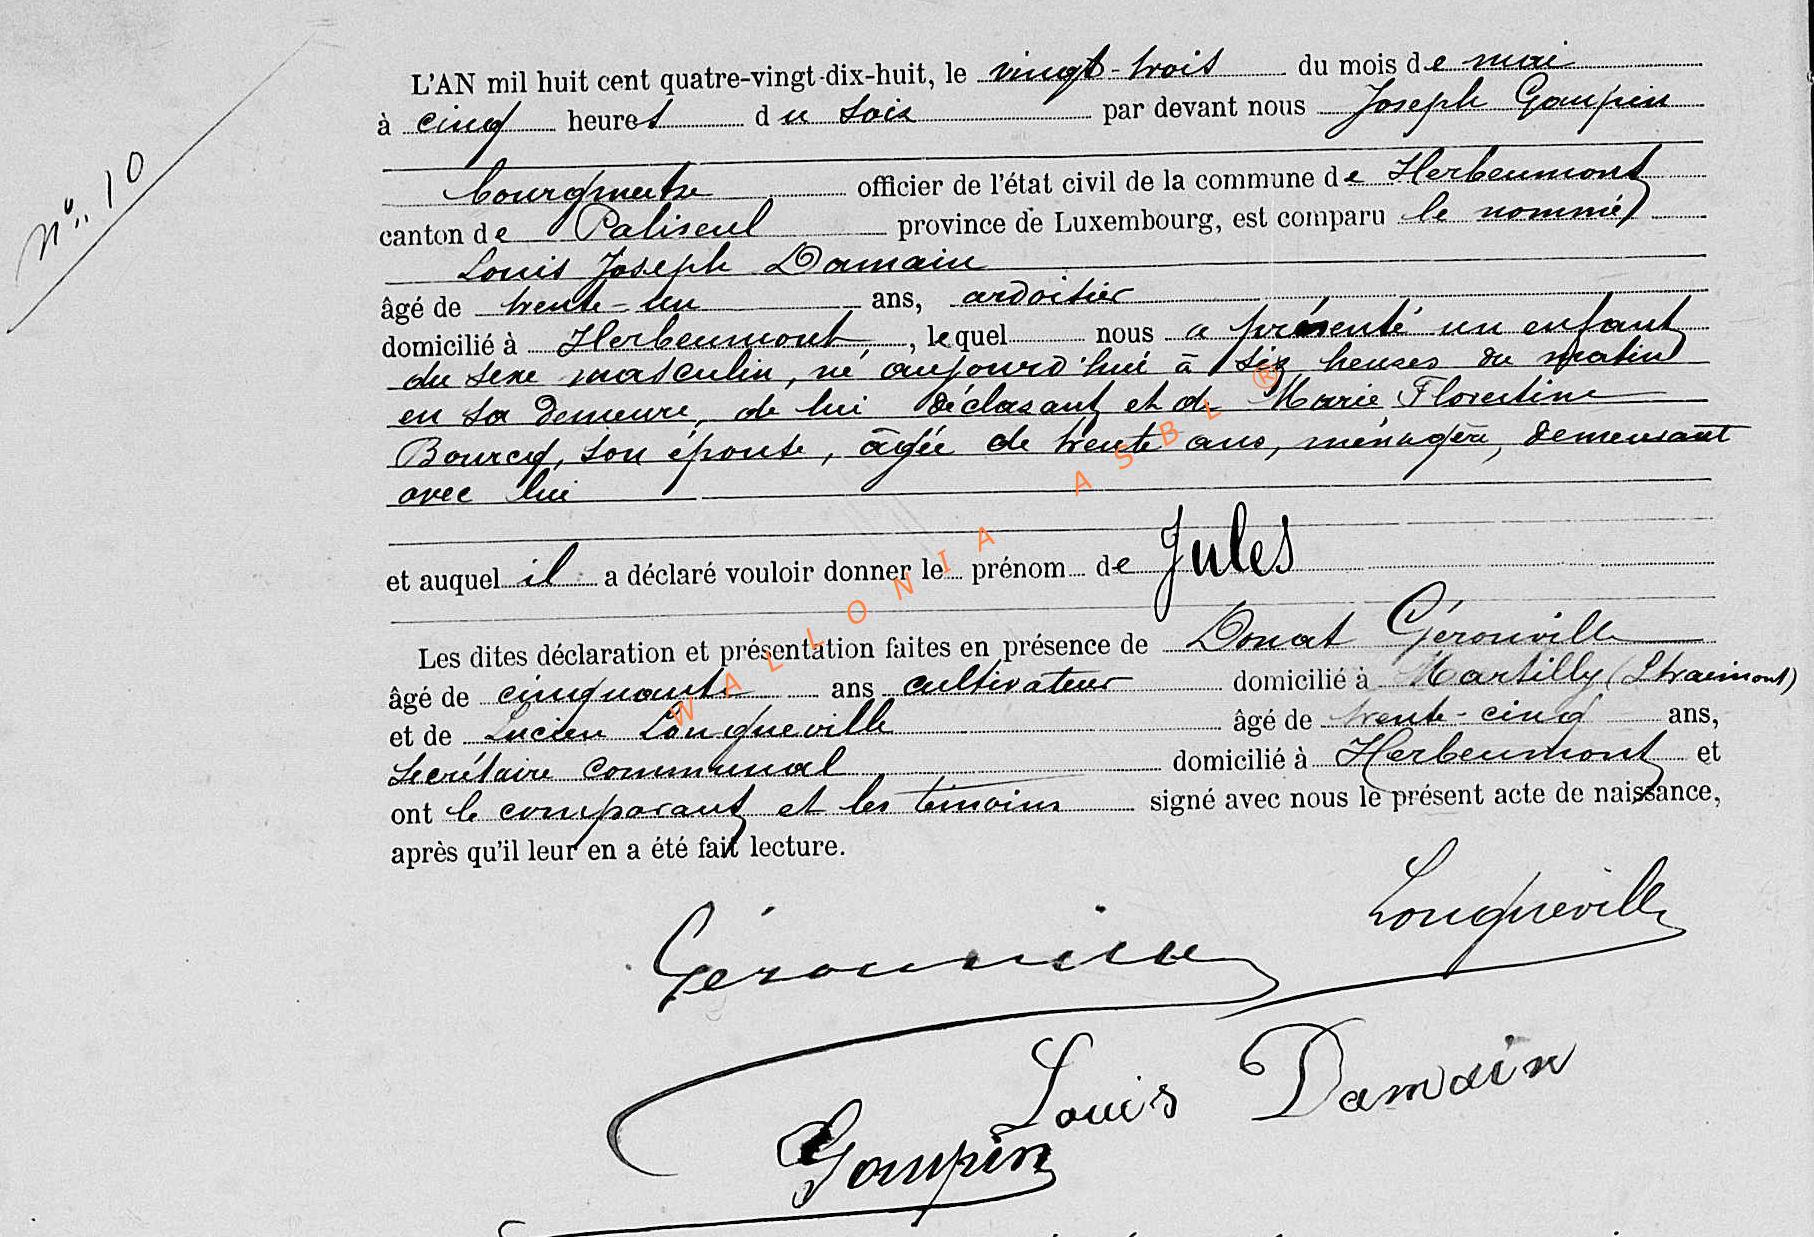 N° 10
L'AN mil huit cent quatre-vingt-dix-huit, le vingt-trois du mois de mai
à cinq heures du soir par devant nous Joseph Gaupin
bourgmestre officier de l'état civil de la commune de Herbeumont
canton de Paliseul province de Luxembourg, est comparu le nommé
Louis Joseph Damain
âgé de trente-un ans, ardoisier
domicilié à Herbeumont, lequel nous a présenté un enfant
du sexe masculin, né aujourd'hui à six heures du matin
en sa demeure, de lui déclarant et de Marie Florentine
Bourcq, son épouse, âgée de trente ans, ménagère, demeurant
avec lui
et auquel il a déclaré vouloir donner le prénom de Jules
Les dites déclaration et présentation faites en présence de Donat Gérouville
âgé de cinquante ans cultivateur domicilié à Martilly (Straimont)
et de Lucien Longueville âgé de trente-cinq ans,
secrétaire communal domicilié à Herbeumont et
ont le comparant et les témoins signé avec nous le présent acte de naissance,
après qu'il leur en a été fait lecture.
Longueville
Gérouville
Louis Damain
Gaupin
WALLONIA ASBL ®